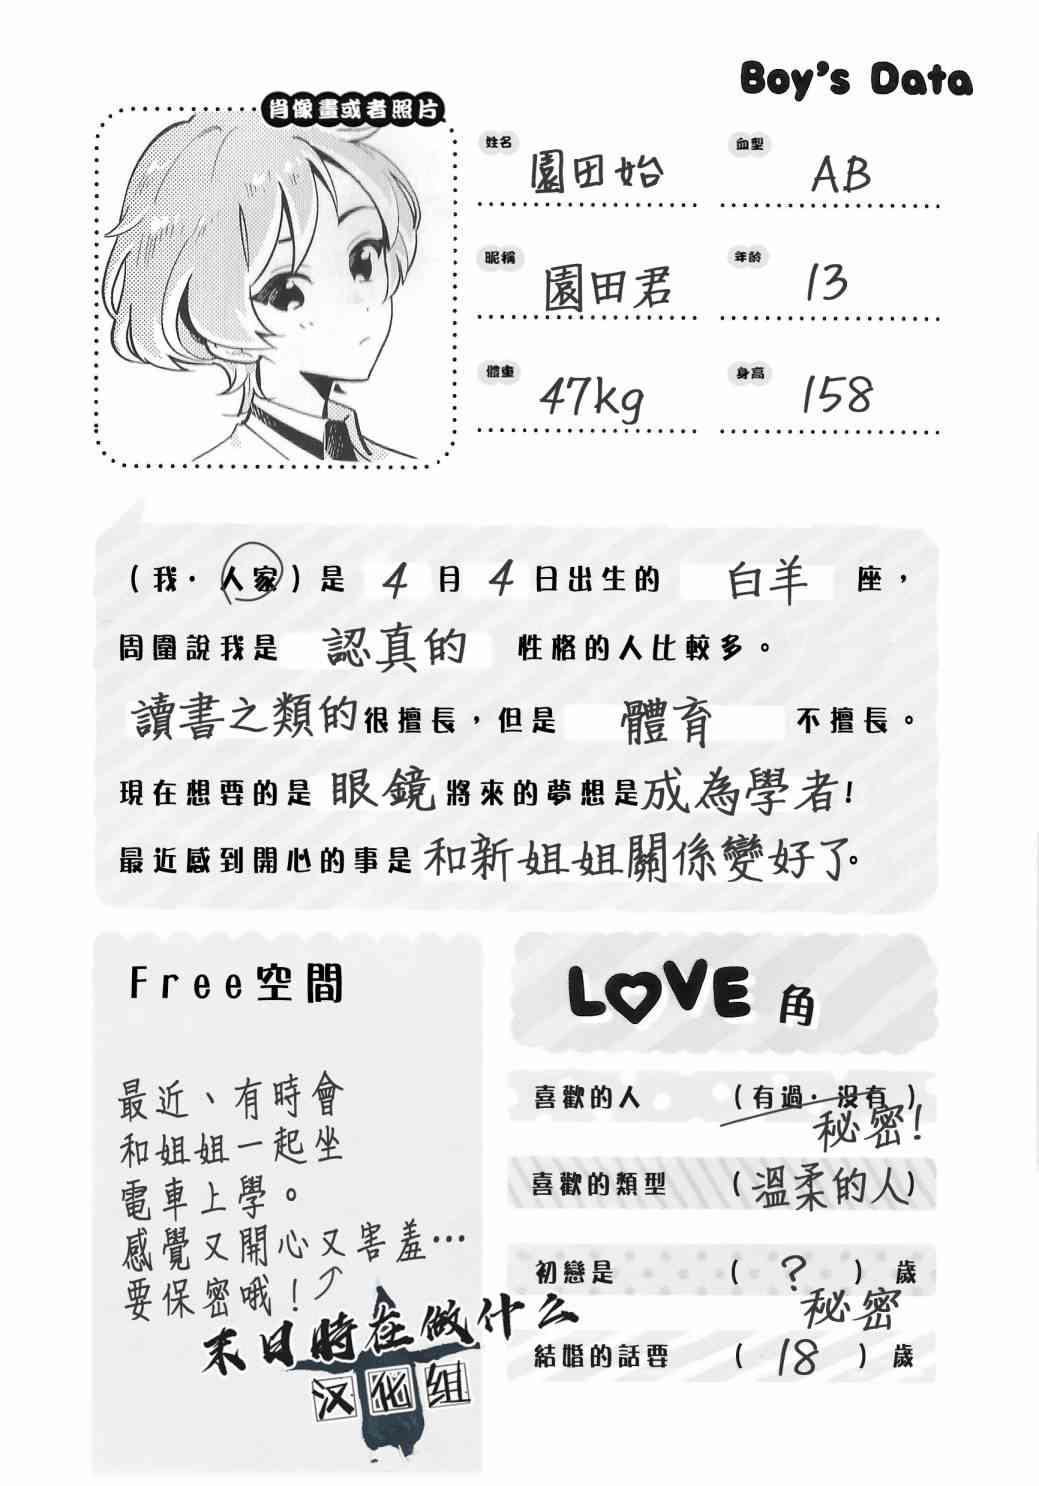 Boy's Data
肖像畫或者照片
姓名 園田始
血型 AB
昵稱 園田君
年齡 13
體重 47kg
身高 158
（我・人家）是 4 月 4 日出生的 白羊 座，
周圍說我是 認真的 性格的人比較多。
讀書之類的很擅長，但是 體育 不擅長。
現在想要的是 眼鏡 將來的夢想是成為學者！
最近感到開心的事是 和新姐姐關係變好了。
Free空間
最近、有時會
和姐姐一起坐
電車上學。
感覺又開心又害羞…
要保密哦！
LOVE 角
喜歡的人 （有過・沒有）
秘密!
喜歡的類型 （溫柔的人）
初戀是 （ ？ ）歲
秘密
結婚的話要 （ 18 ）歲
末日時在做什么
汉化组